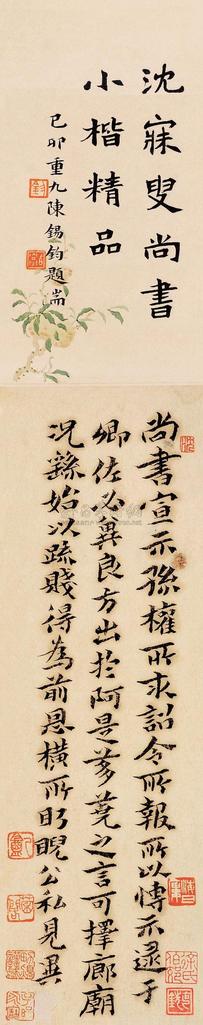 沈寐叟尚書
小楷精品
己卯重九陳錫鈞題耑
尚書宣示孫權所求詔令所報所以博示逮于
卿佐必冀良方出於阿是芻蕘之言可擇廊廟
況繇始以疏賤得為前恩橫所盻睨公私見異